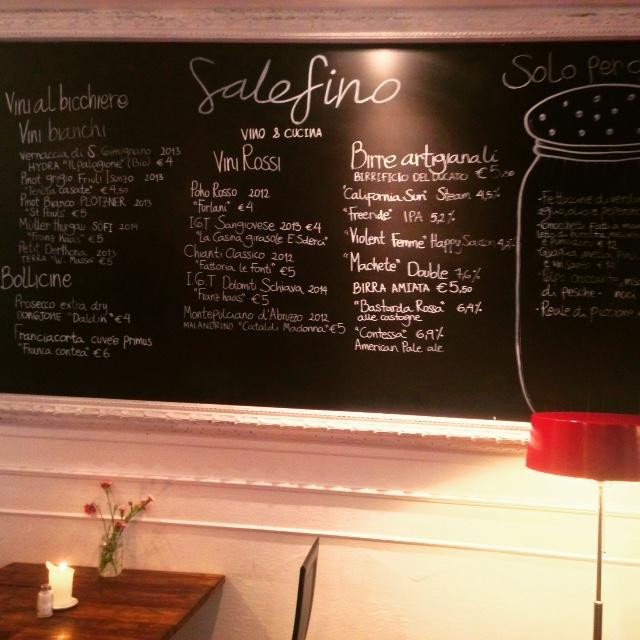 Salefino
VINO & CUCINA
Vini al bicchiere
Vini bianchi
vernaccia di S Gimignano 2013
HYDRA "IL palagione" (Bio) €4
Pinot grigio Friuli Isonzo 2013
"Tenuta casate" €4,50
Pinot Bianco PLOTZNER 2013
"St Pauls" €5
Müller thurgau SÖFI 2014
"Franz Haas" €5
Petit 2013
TERRA €5
Bollicine
Prosecco extra dry
"Daldin" €4
Franciacorta cuveé primus
"Franca contea" €6
Vini Rossi
Poho Rosso 2012
"Furlani" €4
I.G.T Sangiovese 2013 €4
"La Casina girasole E Solera"
Chianti Classico 2012
"Fattoria le Fonti" €5
I.G.T Dolomiti Schiava 2014
Franz haas" €5
Montepulciano d'Abruzzo 2012
MALANDRINO "Cataldi Madonna" €5
Birre artigianali
BIRRIFICIO DEL DUCATO €5,50
"California Sun" Steam 4,5%
"Freeride" IPA 5,2%
"Violent Femme" Happy Saison
"Machete" Double 7,6%
BIRRA AMIATA €5,50
"Bastarda Rossa" 6,4%
alle castagne
"Contessa" 6,9%
American Pale ale
Solo per
di pesche